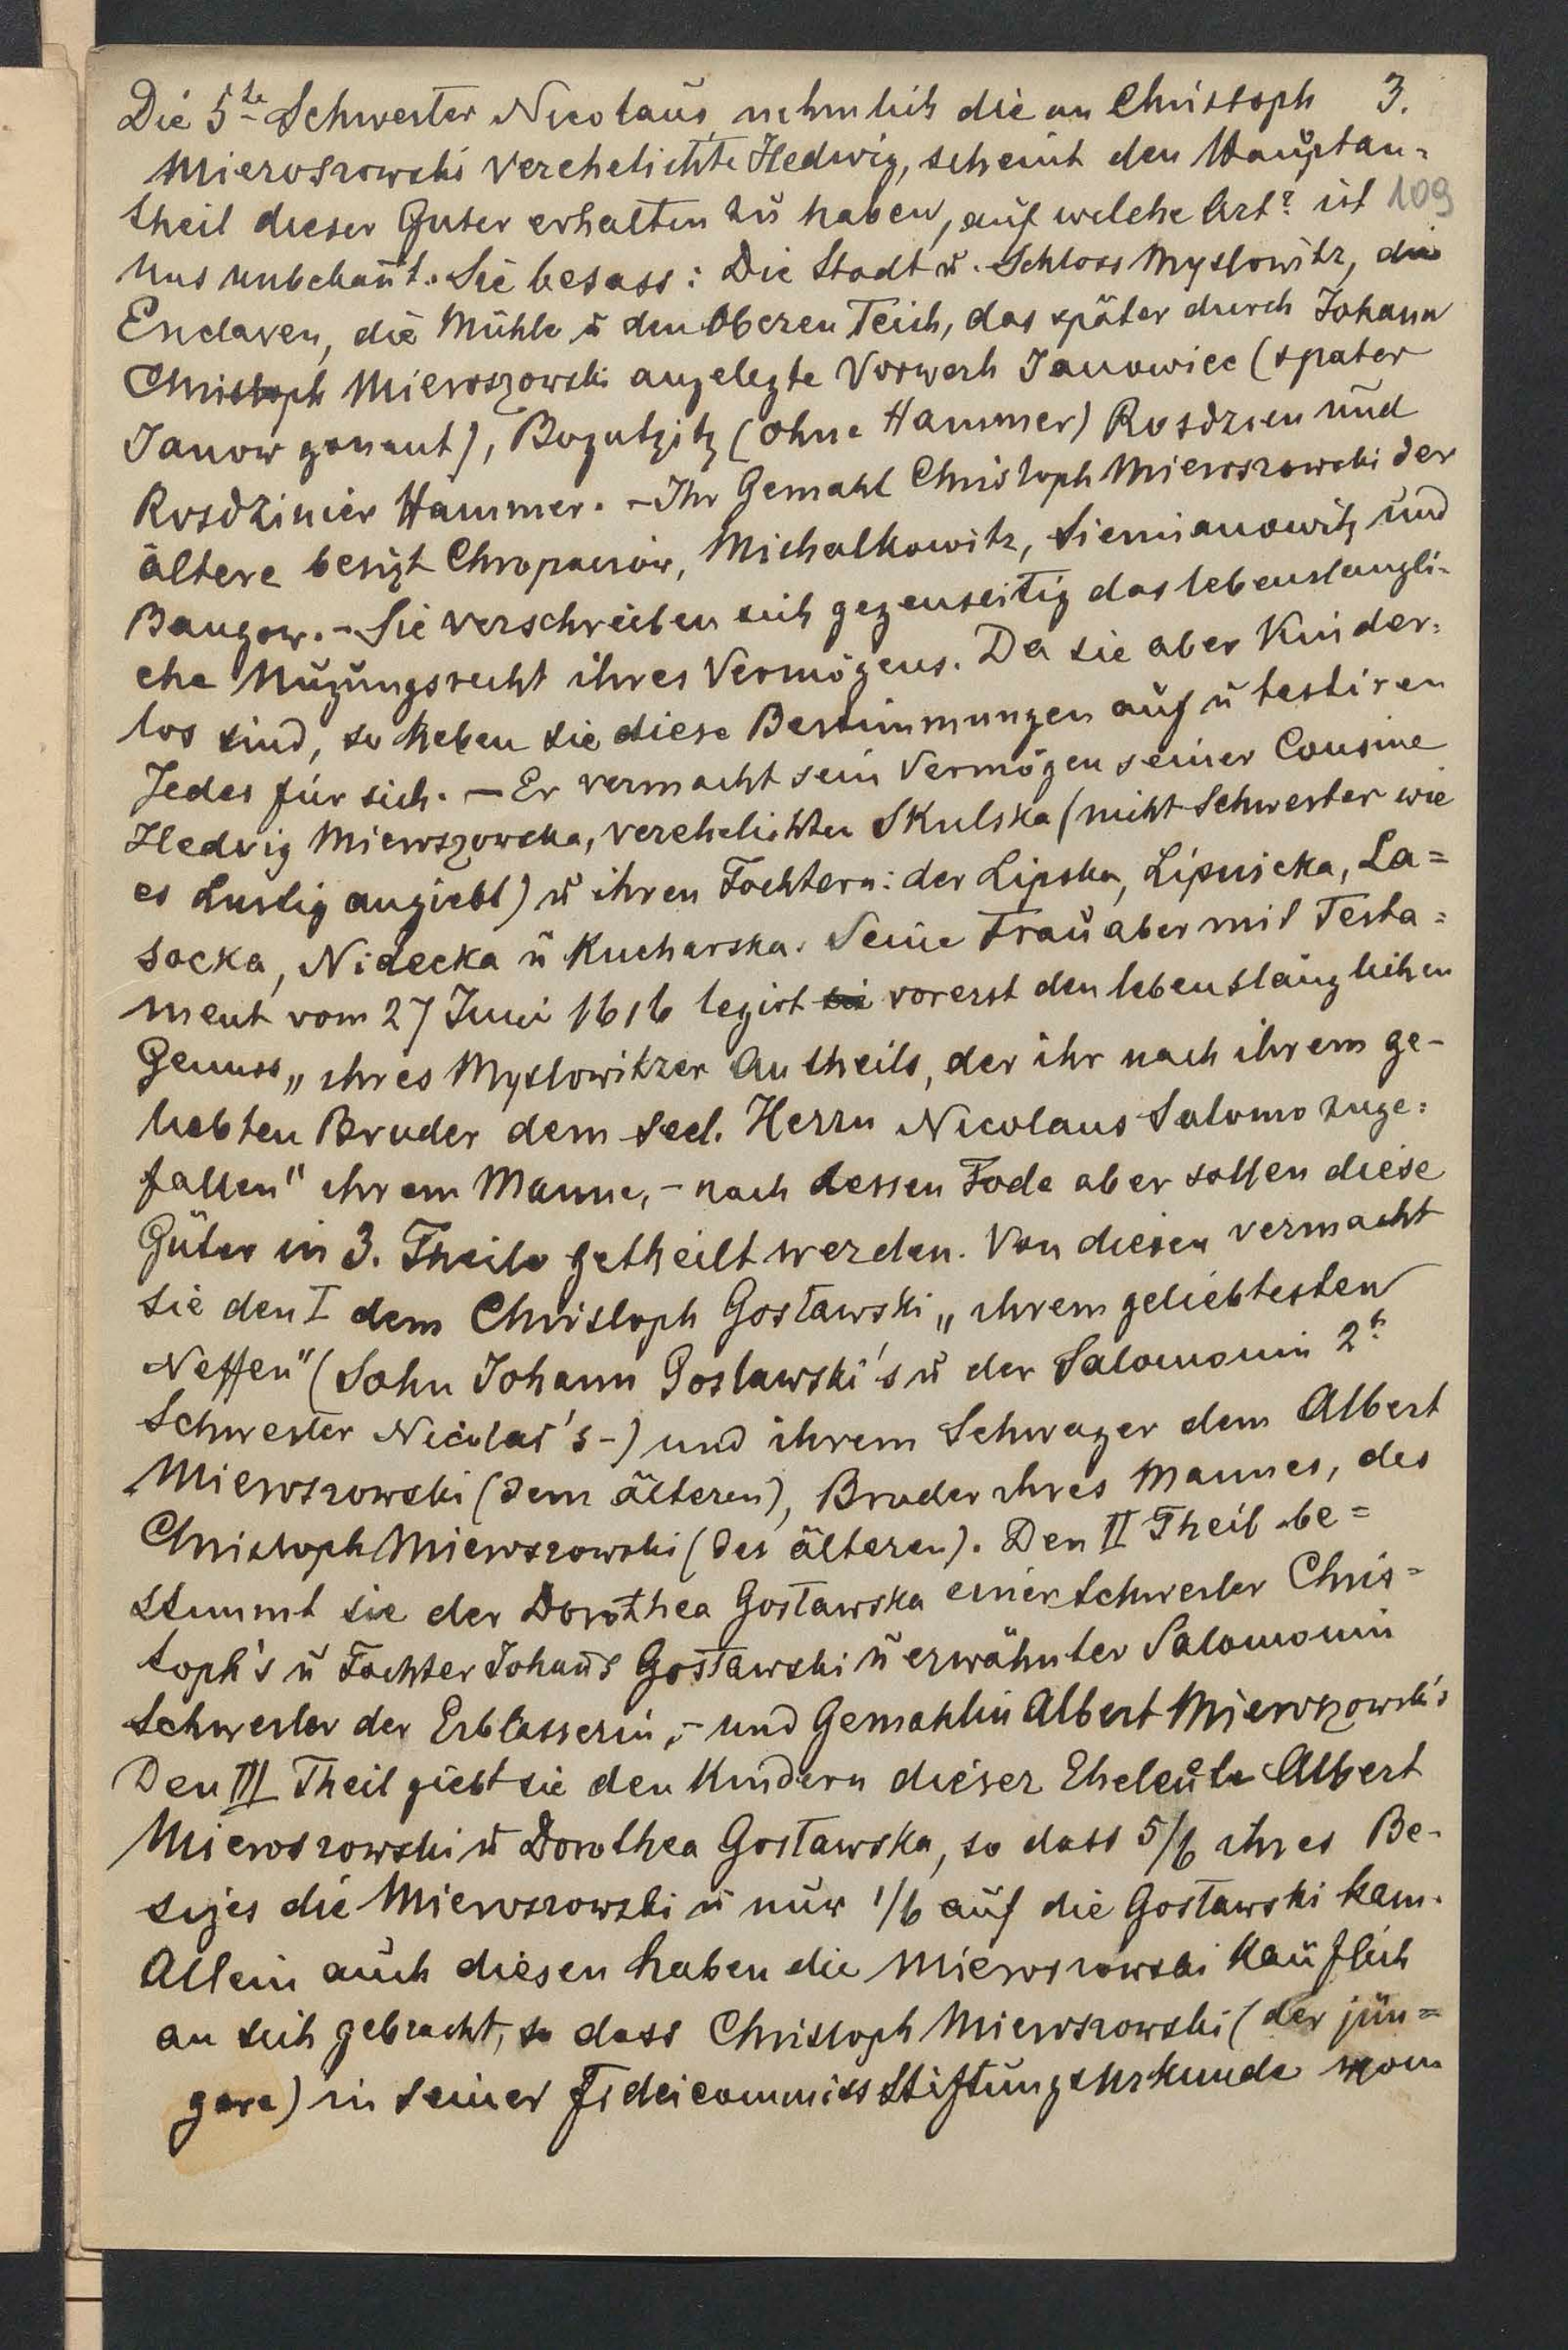 Die 5te Schwester Nicolaus, nehmlich die an Christoph 3.
Mieroszowski verehelichte Hedwig, scheint den Hauptan-
theil dieser Guter erhalten zu haben, auf welche Art? ist 109
uns unbekañt. Sie besass: Die Stadt u. Schloss Myslowitz, die
Enclaven, die Mühle u den Oberen Teich, das später durch Johann
Christoph Mieroszowski angelegte Vorwerk Janowiec (spater
Janow genannt), Bogutzitz (ohne Hammer) Rosdzien und
Rosdzinier Hammer. - Ihr Gemahl Christoph Mieroszowski der
ältere besizt Chropaczów, Michalkowitz, Siemianowitz und
Bangow. - Sie verschreiben sich gegenseitig das lebenslangli-
che Nuzungsrecht ihres Vermögens. Da sie aber Kinder-
los sind, so heben sie diese Bestimmungen auf u testiren
Jedes für sich. - Er vermacht sein Vermögen seiner Cousine
Hedvig Mieroszowska, verehelichten Skulska (nicht Schwester wie
es Lustig angiebt) u ihren Tochtern: der Lipska, Lipnicka, La=
socka, Nidecka u Kucharska. Seine Frau aber mit Testa=
ment vom 27 Juni 1616 legirt sie vorerst den lebenslänglichen
Genuss „ihres Myslowitzer Antheils, der ihr nach ihrem ge-
liebten Bruder dem seel. Herrn Nicolaus Salomo zuge=
fallen" ihrem Manne, - nach dessen Tode aber sollen diese
Güter in 3. Theile getheilt werden. Von diesen vermacht
sie den I dem Christoph Gosławski „ihrem geliebtesten
Neffen" (Sohn Johann Goslawski's u der Salomonin 2t
Schwester Nicolai's -) und ihrem Schwager dem Albert
Mieroszowski (dem älteren), Bruder ihres Mannes, des
Christoph Mieroszowski (des älteren). Den II Theil be=
stimmt sie der Dorothea Gosławska einer Schwester Chris=
toph's u Tochter Johañs Gosławski u erwähnter Salomonin
Schwester der Erblasserin, - und Gemahlin Albert Mieroszowski's
Den III Theil giebt sie den Kindern dieser Eheleute Albert
Mieroszowski u Dorothea Gosławska, so dass 5/6 ihres Be-
sizes die Mieroszowski u nur 1/6 auf die Gosławski kam.
Allein auch diesen haben die Mieroszowski Käuflich
an sich gebracht, so dass Christoph Mieroszowski (der jün=
gere) in seiner Fideicommiss Stiftungsurkunde vom